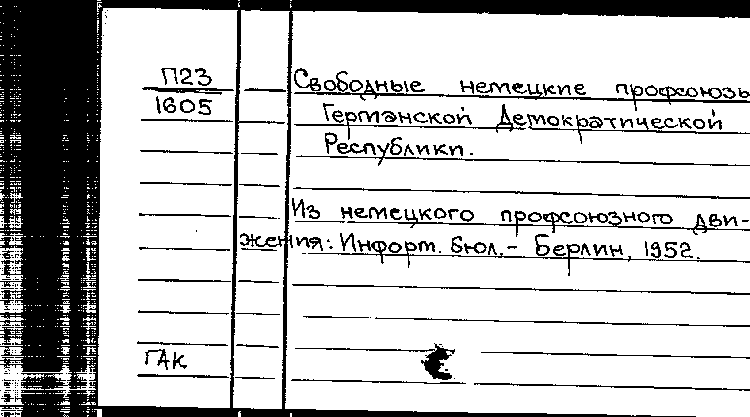 П23
1605
Свободные немецкие профсоюзы
Германской Демократической
Республики.
Из немецкого профсоюзного дви-
жения: Информ. бюл. – Берлин, 1952.
ГАК